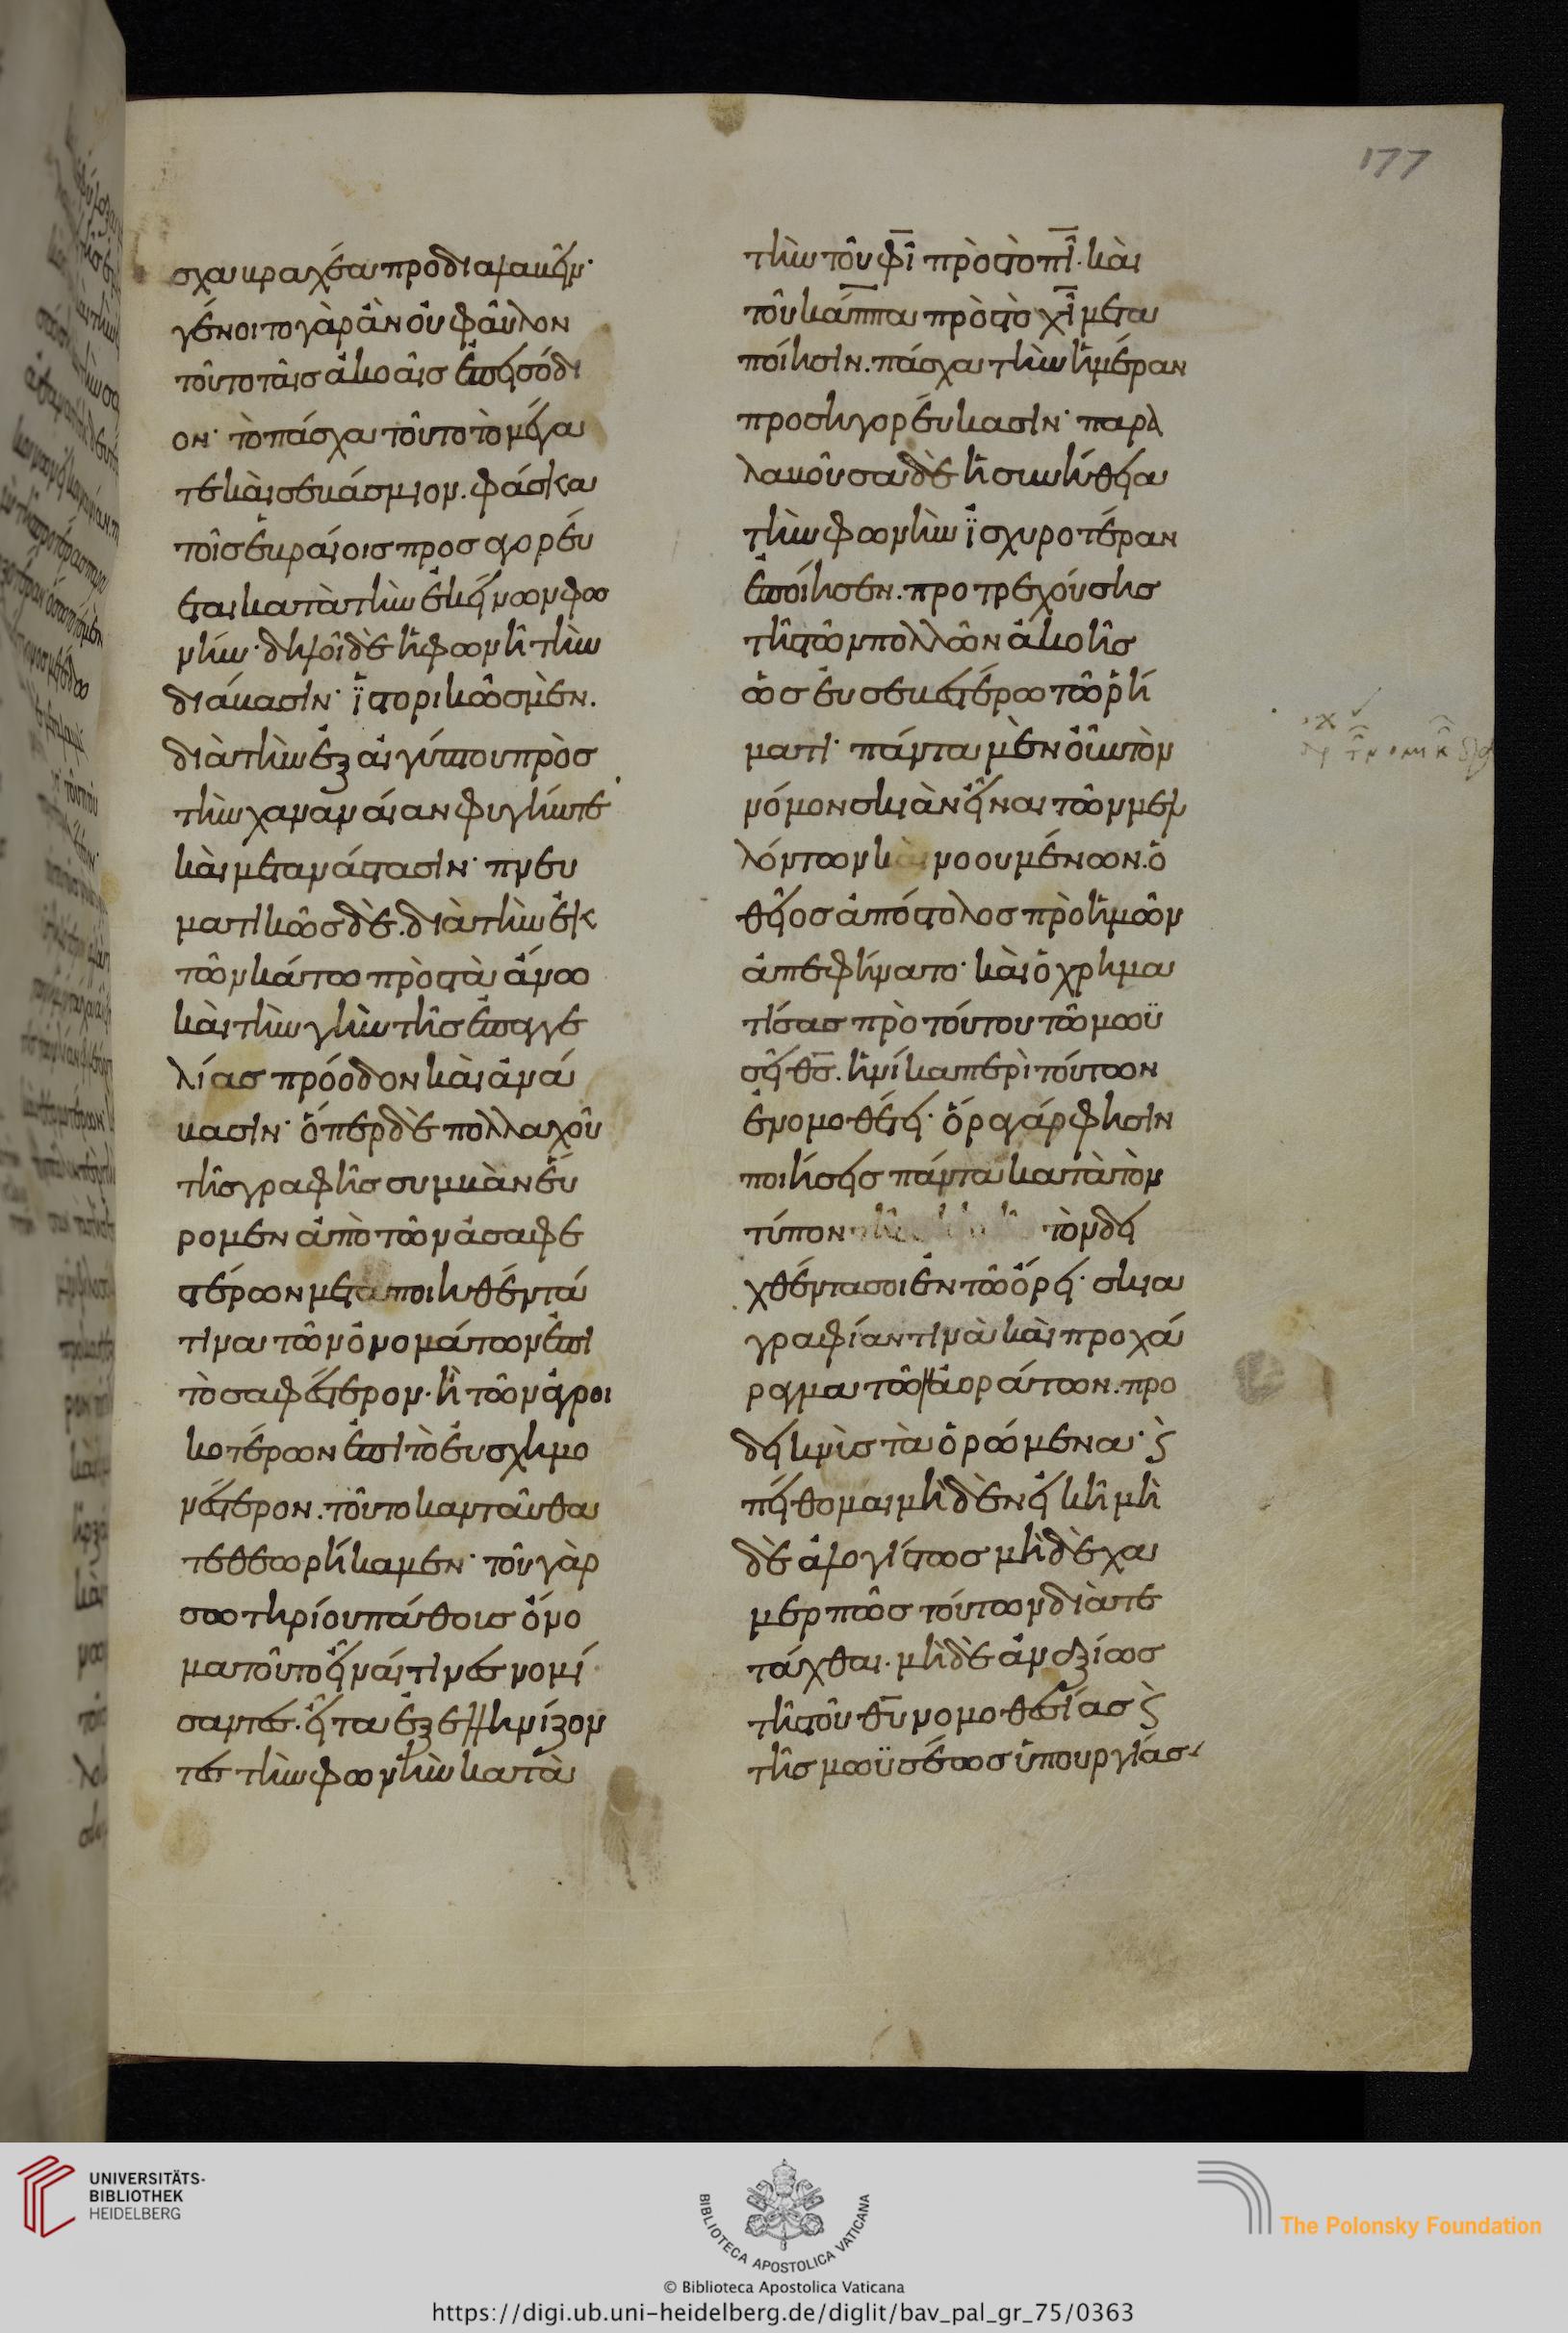 177
σχα βραχέα προδιαλαβεῖν·
γένοιτο γὰρ ἂν οὐ φαῦλον
τοῦτο ταῖς ἀκοαῖς ἐπεισόδι
ον· τὸ πάσχα τοῦτο τὸ μέγα
τε καὶ σεβάσμιον. φάσκα
τοῖς ἑβραίοις προσαγορεύ
εται κατὰ τὴν ἐκείνων φω
νήν· δηλοῖ δὲ ἡ φωνὴ τὴν
διάβασιν· ϊστορικῶς μὲν.
διὰ τὴν ἐξ αἰγύπτου πρὸς
τὴν χαναναίαν φυγήν τε
καὶ μετανάστασιν· πνευ
ματικῶς δὲ. διὰ τὴν ἐκ
τῶν κάτω πρὸς τὰ ἄνω
καὶ τὴν γῆν τῆς ἐπαγγε
λίας πρόοδον καὶ ἀνά
βασιν· ὅπερ δὲ πολλαχοῦ
τῆς γραφῆς συμβὰν εὕ
ρομεν ἀπὸ τῶν ἀσαφε
στέρων μεταποιηθέντά
τινα τῶν ὀνομάτων ἐπὶ
τὸ σαφέστερον. ἢ τῶν ἀγροι
κοτέρων ἐπὶ τὸ εὐσχημο
νέστερον. τοῦτο κἀνταῦθα
τεθεωρήκαμεν· τοῦ γὰρ
σωτηρίου πάθους ὄνο
μα τοῦτο εἶναί τινες νομί
σαντες. εἶτα ἐξελληνίζον
τες τὴν φωνὴν κατὰ
τὴν τοῦ φῖ πρὸς τὸ πῖ. καὶ
τοῦ κάππα πρὸς τὸ χῖ μετα
ποίησιν. πάσχα τὴν ἡμέραν
προσηγορεύκασιν· παρα
λαβοῦσα δὲ ἡ συνήθεια
τὴν φωνὴν ϊσχυροτέραν
ἐποίησεν. προτρεχούσης
τῆς τῶν πολλῶν ἀκοῆς
ὡς εὐσεβεστέρω τῶ ῥή
ματι· πάντα μὲν οὖν τὸν
νόμον σκιὰν εἶναι τῶν μελ
λόντων καὶ νοουμένων. ὁ
θεῖος ἀπόστολος πρὸ ἡμῶν
ἀπεφήνατο· καὶ ὁ χρημα
τίσας πρὸ τούτου τῶ μωϋ
σεῖ θς. ἡνίκα περὶ τούτων
ἐνομοθέτει· ὅρα γάρ φησιν
ποιήσεις πάντα κατὰ τὸν
τύπον τὸν δει
χθέντα σοι ἐν τῶ ὄρει· σκια
γραφίαν τινὰ καὶ προχά
ραγμα τῶν ἀοράτων. προ
δεικνὺς τὰ ὁρώμενα· καὶ
πείθομαι μηδὲν εἰκῆ μη
δὲ ἀλογίστως μηδὲ χα
μερπῶς τούτων διατε
τάχθαι. μηδὲ ἀναξίως
τῆς τοῦ θυ νομοθεσίας καὶ
τῆς μωϋσέως ὑπουργίας·
UNIVERSITÄTS-
BIBLIOTHEK
HEIDELBERG
BIBLIOTECA APOSTOLICA VATICANA
The Polonsky Foundation
© Biblioteca Apostolica Vaticana
https://digi.ub.uni-heidelberg.de/diglit/bav_pal_gr_75/0363